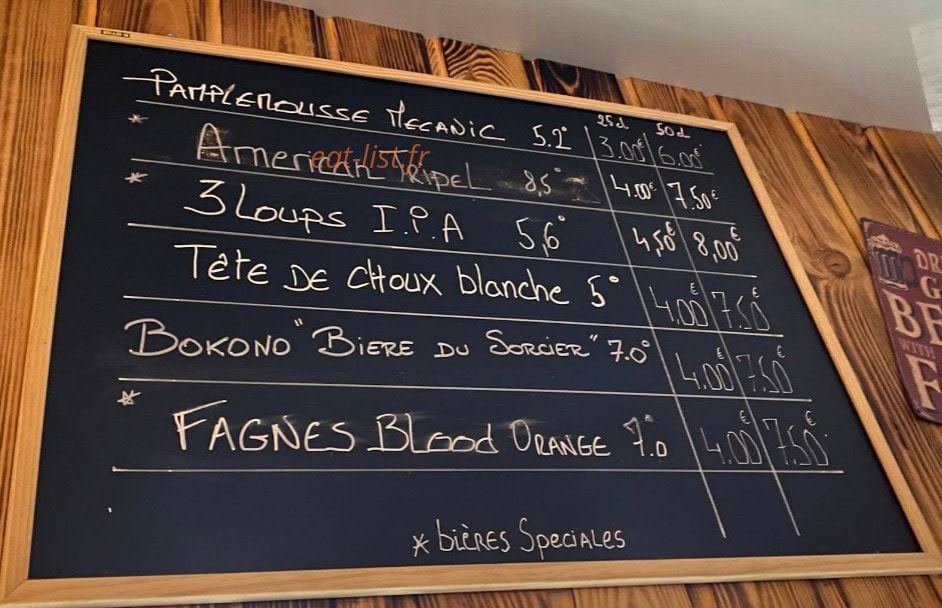 25d 50d
PAMPLEMOUSSE MECANIC 5.2° 3.00€ 6.00€
* American TRIPEL 8,5° 4.00€ 7.50€
eat-list.fr
* 3 Loups I.P.A 5,6° 4,50€ 8,00€
Tête DE CHOUX blanche 5° 4,00€ 7.50€
BOKONO "BIERE DU SORCIER" 7.0° 4,00€ 7.50€
* FAGNES BLood ORANGE 7°.0 4,00€ 7.50€
* bières Speciales
DR
G
B
WITH
F